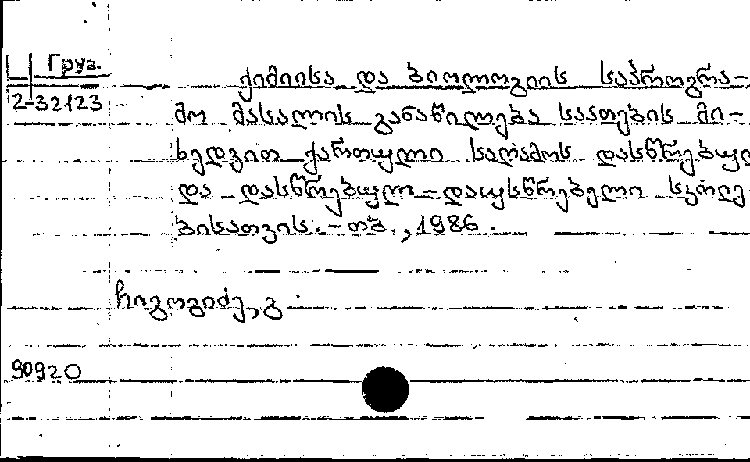 Груз.
2-32123
ქიმიისა და ბიოლოგიის საპროგრა-
მო მასალის განაწილება საათების მი-
ხედვით ქართული საღამოს დასწრებულ
და დასწრებულ-დაუსწრებელი სკოლე
ბისათვის. - თბ., 1986.
ჩიგოგიძე, გ.
90920